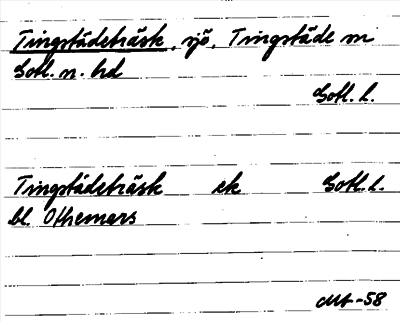 Tingstädeträsk, sjö, Tingstäde sn
Gotl. n. hd
Gotl. l.
Tingstädeträsk ek Gotl. l.
bl. Othemars
-58